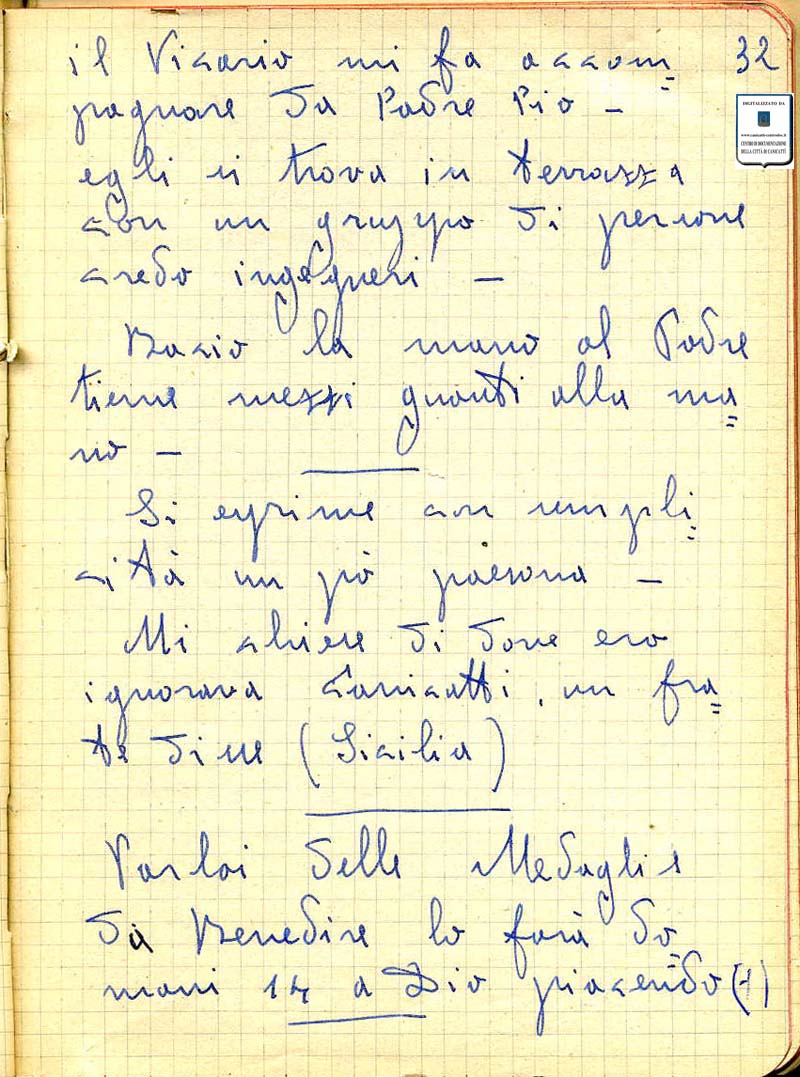 il Vicario mi fa accom= 32
pagnare da Padre Pio –
egli si trova in terrazza
con un gruppo di persone
credo ingegneri –
Bacio la mano al Padre
tiene mezzi guanti alla ma=
no –
Si esprime con sempli=
cità un pò paesana –
Mi chiese di dove ero
ignorava Canicatti, un fra=
te disse (Sicilia)
Parlai delle Medaglie
da Benedire lo farà do=
mani 14 a Dio piacendo (1)
DIGITALIZZATO DA
www.canicatti-centrodoc.it
CENTRO DI DOCUMENTAZIONE
DELLA CITTÀ DI CANICATTÌ